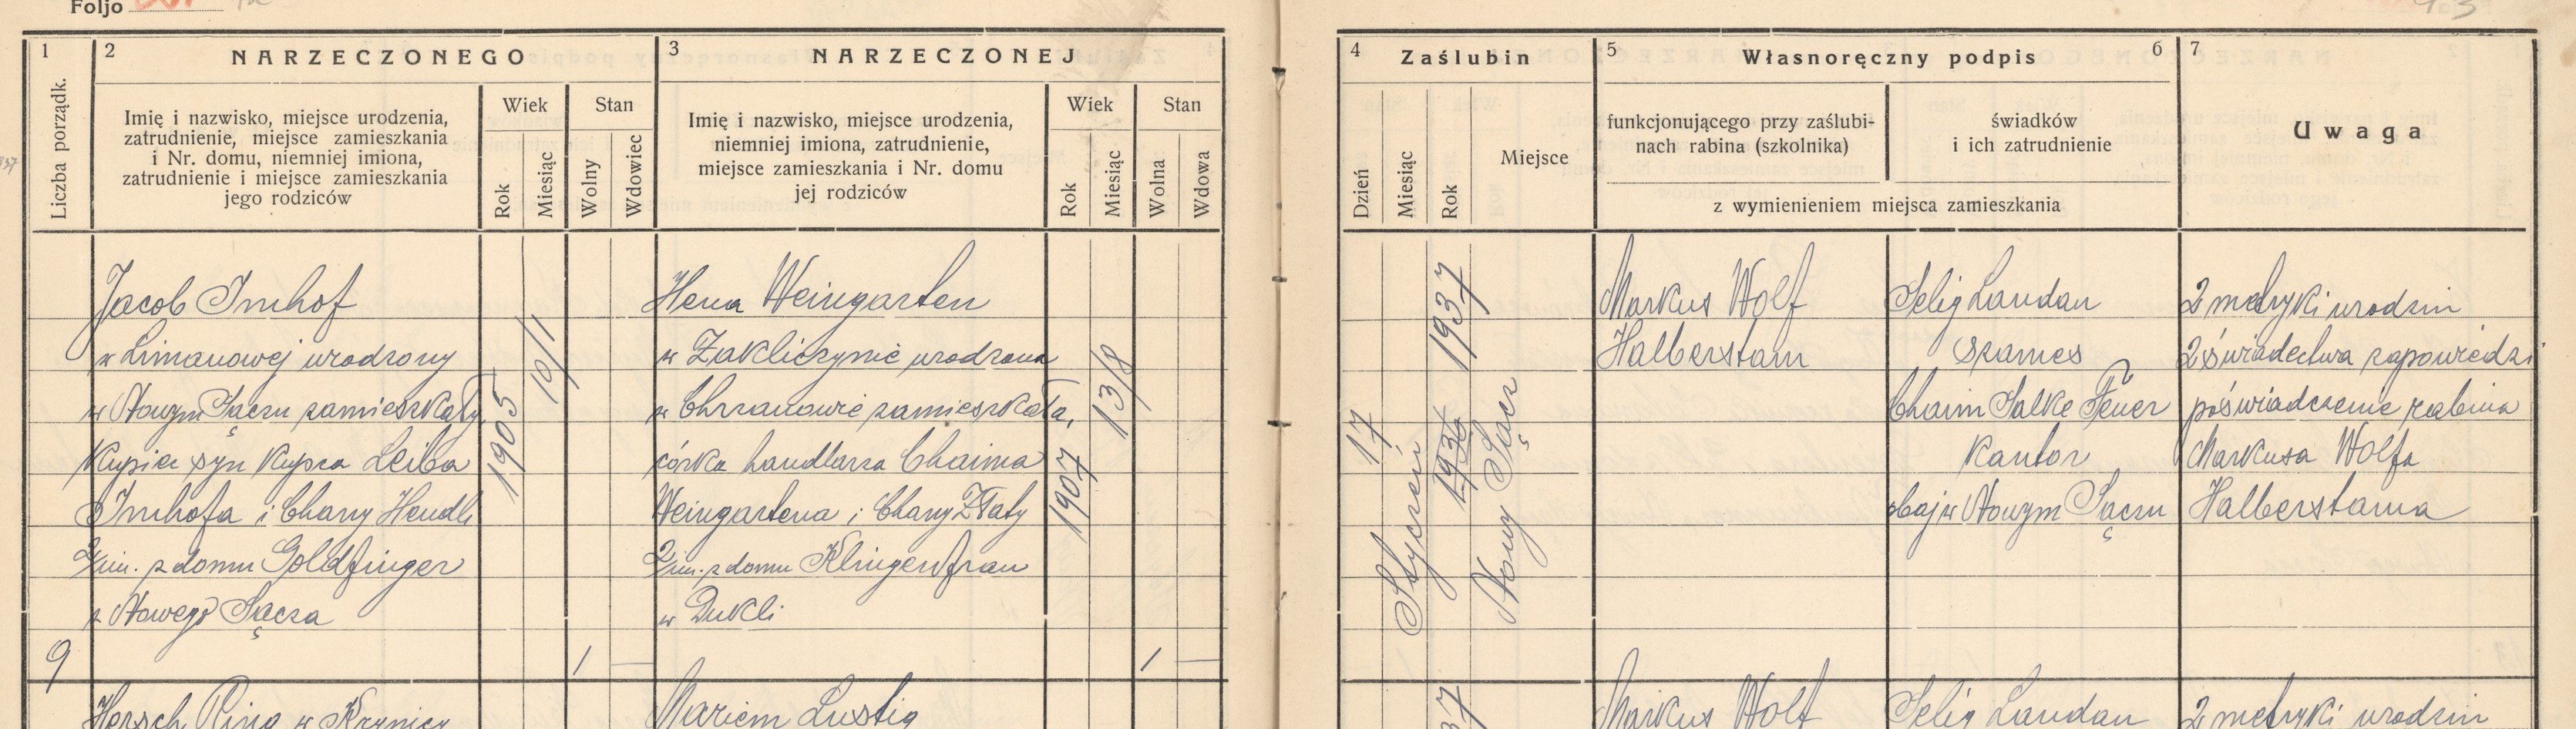 Foljo
1
2 NARZECZONEGO
Liczba porządk.
Imię i nazwisko, miejsce urodzenia,
zatrudnienie, miejsce zamieszkania
i Nr. domu, niemniej imiona,
zatrudnienie i miejsce zamieszkania
jego rodziców
Wiek
Rok
Miesiąc
Stan
Wolny
Wdowiec
3 NARZECZONEJ
Imię i nazwisko, miejsce urodzenia,
niemniej imiona, zatrudnienie,
miejsce zamieszkania i Nr. domu
jej rodziców
Wiek
Rok
Miesiąc
Stan
Wolna
Wdowa
4 Zaślubin
Dzień
Miesiąc
Rok
Miejsce
5 Własnoręczny podpis 6
funkcjonującego przy zaślubi-
nach rabina (szkolnika)
świadków
i ich zatrudnienie
z wymienieniem miejsca zamieszkania
7
Uwaga
9
Jacob Imhof
w Limanowej urodzony
w Nowym Sączu zamieszkały,
Kupiec syn Kupca Leiba
Imhofa i Chany Hendli
2/im. z domu Goldfinger
z Nowego Sącza
1905
10/1
1 —
Hena Weingarten
w Zakliczynie urodzona
w Chrzanowie zamieszkała,
córka handlarza Chaima
Weingartena i Chany Złaty
2/im. z domu Klingenfrau
w Dukli
1907
13/8
1 —
17
Styczeń
1936
1937
Nowy Sącz
Markus Wolf
Halberstam
Selig Landau
szames
Chaim Salke Feuer
Kantor
obaj w Nowym Sączu
2 metryki urodzin
2 świadectwa zapowiedzi
poświadczenie rabina
Markusa Wolfa
Halberstama
Hersch Ring w Krynicy
Mariem Lustig
37
Markus Wolf
Selig Landau
2 metryki urodzin